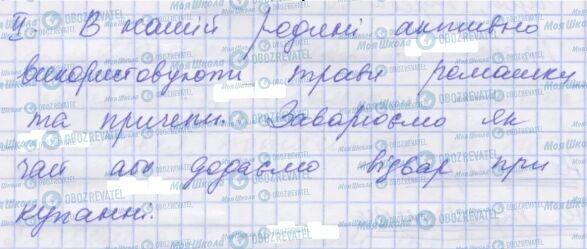 ІІ. В нашій родині активно
використовують трави ромашки
та причепи. Заварюємо як
чай або додаємо відвар при
купанні.